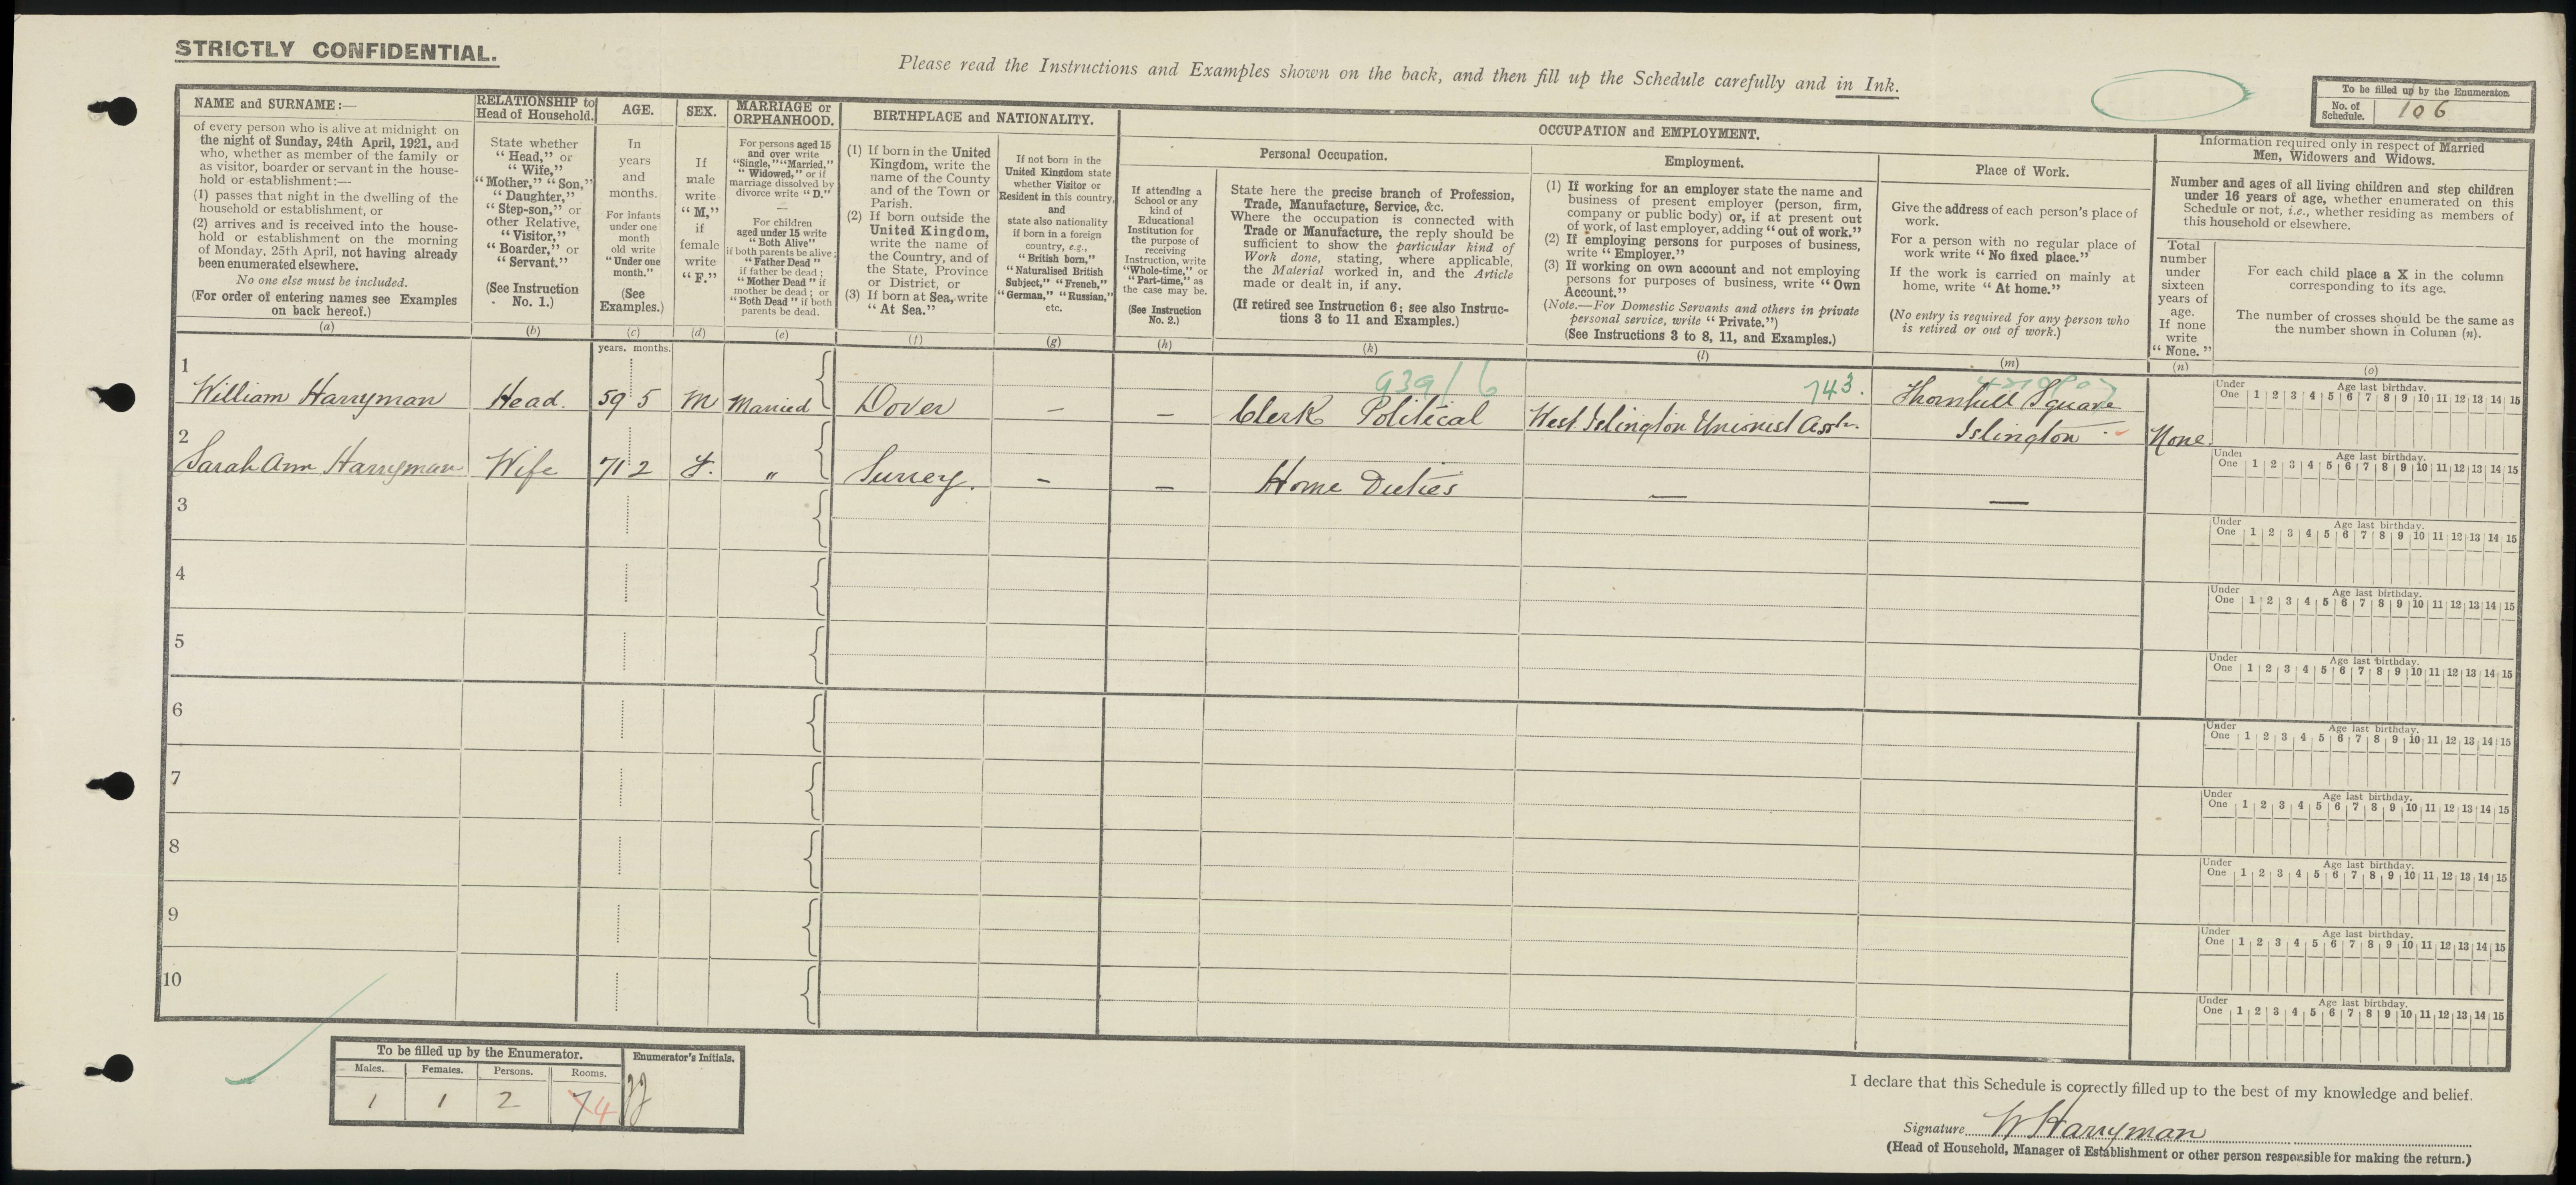 STRICTLY CONFIDENTIAL.
Please read the Instructions and Examples shown on the back, and then fill up the Schedule carefully and in Ink.
To be filled up by the Enumerator.
No. of Schedule. 106
NAME and SURNAME:—
of every person who is alive at midnight on
the night of Sunday, 24th April, 1921, and
who, whether as member of the family or
as visitor, boarder or servant in the house-
hold or establishment:—
(1) passes that night in the dwelling of the
household or establishment, or
(2) arrives and is received into the house-
hold or establishment on the morning
of Monday, 25th April, not having already
been enumerated elsewhere.
No one else must be included.
(For order of entering names see Examples
on back hereof.)
(a)
RELATIONSHIP to
Head of Household.
State whether
“Head,” or
“Wife,”
“Mother,” “Son,”
“Daughter,”
“Step-son,” or
other Relative,
“Visitor,”
“Boarder,” or
“Servant.”
(See Instruction
No. 1.)
(b)
AGE.
In
years
and
months.
For infants
under one
month
old write
“Under one
month.”
(See
Examples.)
(c)
SEX.
If
male
write
“M,”
if
female
write
“F.”
(d)
MARRIAGE or
ORPHANHOOD.
For persons aged 15
and over write
“Single,” “Married,”
“Widowed,” or if
marriage dissolved by
divorce write “D.”
—
For children
aged under 15 write
“Both Alive”
if both parents be alive;
“Father Dead”
if father be dead;
“Mother Dead” if
mother be dead; or
“Both Dead” if both
parents be dead.
(e)
BIRTHPLACE and NATIONALITY.
(1) If born in the United
Kingdom, write the
name of the County
and of the Town or
Parish.
(2) If born outside the
United Kingdom,
write the name of
the Country, and of
the State, Province
or District, or
(3) If born at Sea, write
“At Sea.”
(f)
If not born in the
United Kingdom state
whether Visitor or
Resident in this country,
and
state also nationality
if born in a foreign
country, e.g.,
“British born,”
“Naturalised British
Subject,” “French,”
“German,” “Russian,”
etc.
(g)
OCCUPATION and EMPLOYMENT.
If attending a
School or any
kind of
Educational
Institution for
the purpose of
receiving
Instruction, write
“Whole-time,” or
“Part-time,” as
the case may be.
(See Instruction
No. 2.)
(h)
Personal Occupation.
State here the precise branch of Profession,
Trade, Manufacture, Service, &c.
Where the occupation is connected with
Trade or Manufacture, the reply should be
sufficient to show the particular kind of
Work done, stating, where applicable,
the Material worked in, and the Article
made or dealt in, if any.
(If retired see Instruction 6; see also Instruc-
tions 3 to 11 and Examples.)
(k)
Employment.
(1) If working for an employer state the name and
business of present employer (person, firm,
company or public body) or, if at present out
of work, of last employer, adding “out of work.”
(2) If employing persons for purposes of business,
write “Employer.”
(3) If working on own account and not employing
persons for purposes of business, write “Own
Account.”
(Note.—For Domestic Servants and others in private
personal service, write “Private.”)
(See Instructions 3 to 8, 11, and Examples.)
(l)
Place of Work.
Give the address of each person's place of
work.
For a person with no regular place of
work write “No fixed place.”
If the work is carried on mainly at
home, write “At home.”
(No entry is required for any person who
is retired or out of work.)
(m)
Information required only in respect of Married
Men, Widowers and Widows.
Number and ages of all living children and step children
under 16 years of age, whether enumerated on this
Schedule or not, i.e., whether residing as members of
this household or elsewhere.
Total
number
under
sixteen
years of
age.
If none
write
“None.”
(n)
For each child place a X in the column
corresponding to its age.
The number of crosses should be the same as
the number shown in Column (n).
(o)
years. months.
939/6
743.
1 William Harryman Head. 59 5 M Married Dover – – Clerk Political West Islington Unionist Assn. Thornhill Square
Islington None.
Under One Age last birthday. 1 2 3 4 5 6 7 8 9 10 11 12 13 14 15
2 Sarah Ann Harryman Wife 71 2 F. „ Surrey. – – Home Duties — —
Under One Age last birthday. 1 2 3 4 5 6 7 8 9 10 11 12 13 14 15
3
Under One Age last birthday. 1 2 3 4 5 6 7 8 9 10 11 12 13 14 15
4
Under One Age last birthday. 1 2 3 4 5 6 7 8 9 10 11 12 13 14 15
5
Under One Age last birthday. 1 2 3 4 5 6 7 8 9 10 11 12 13 14 15
6
Under One Age last birthday. 1 2 3 4 5 6 7 8 9 10 11 12 13 14 15
7
Under One Age last birthday. 1 2 3 4 5 6 7 8 9 10 11 12 13 14 15
8
Under One Age last birthday. 1 2 3 4 5 6 7 8 9 10 11 12 13 14 15
9
Under One Age last birthday. 1 2 3 4 5 6 7 8 9 10 11 12 13 14 15
10
Under One Age last birthday. 1 2 3 4 5 6 7 8 9 10 11 12 13 14 15
To be filled up by the Enumerator.
Enumerator's Initials.
Males. Females. Persons. Rooms.
1 1 2 7 4
I declare that this Schedule is correctly filled up to the best of my knowledge and belief.
Signature W Harryman
(Head of Household, Manager of Establishment or other person responsible for making the return.)